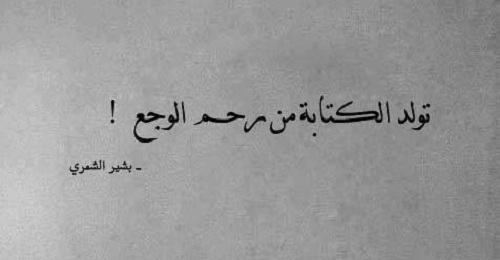 تولد الكتابة من رحم الوجع !
- بشير الشمري